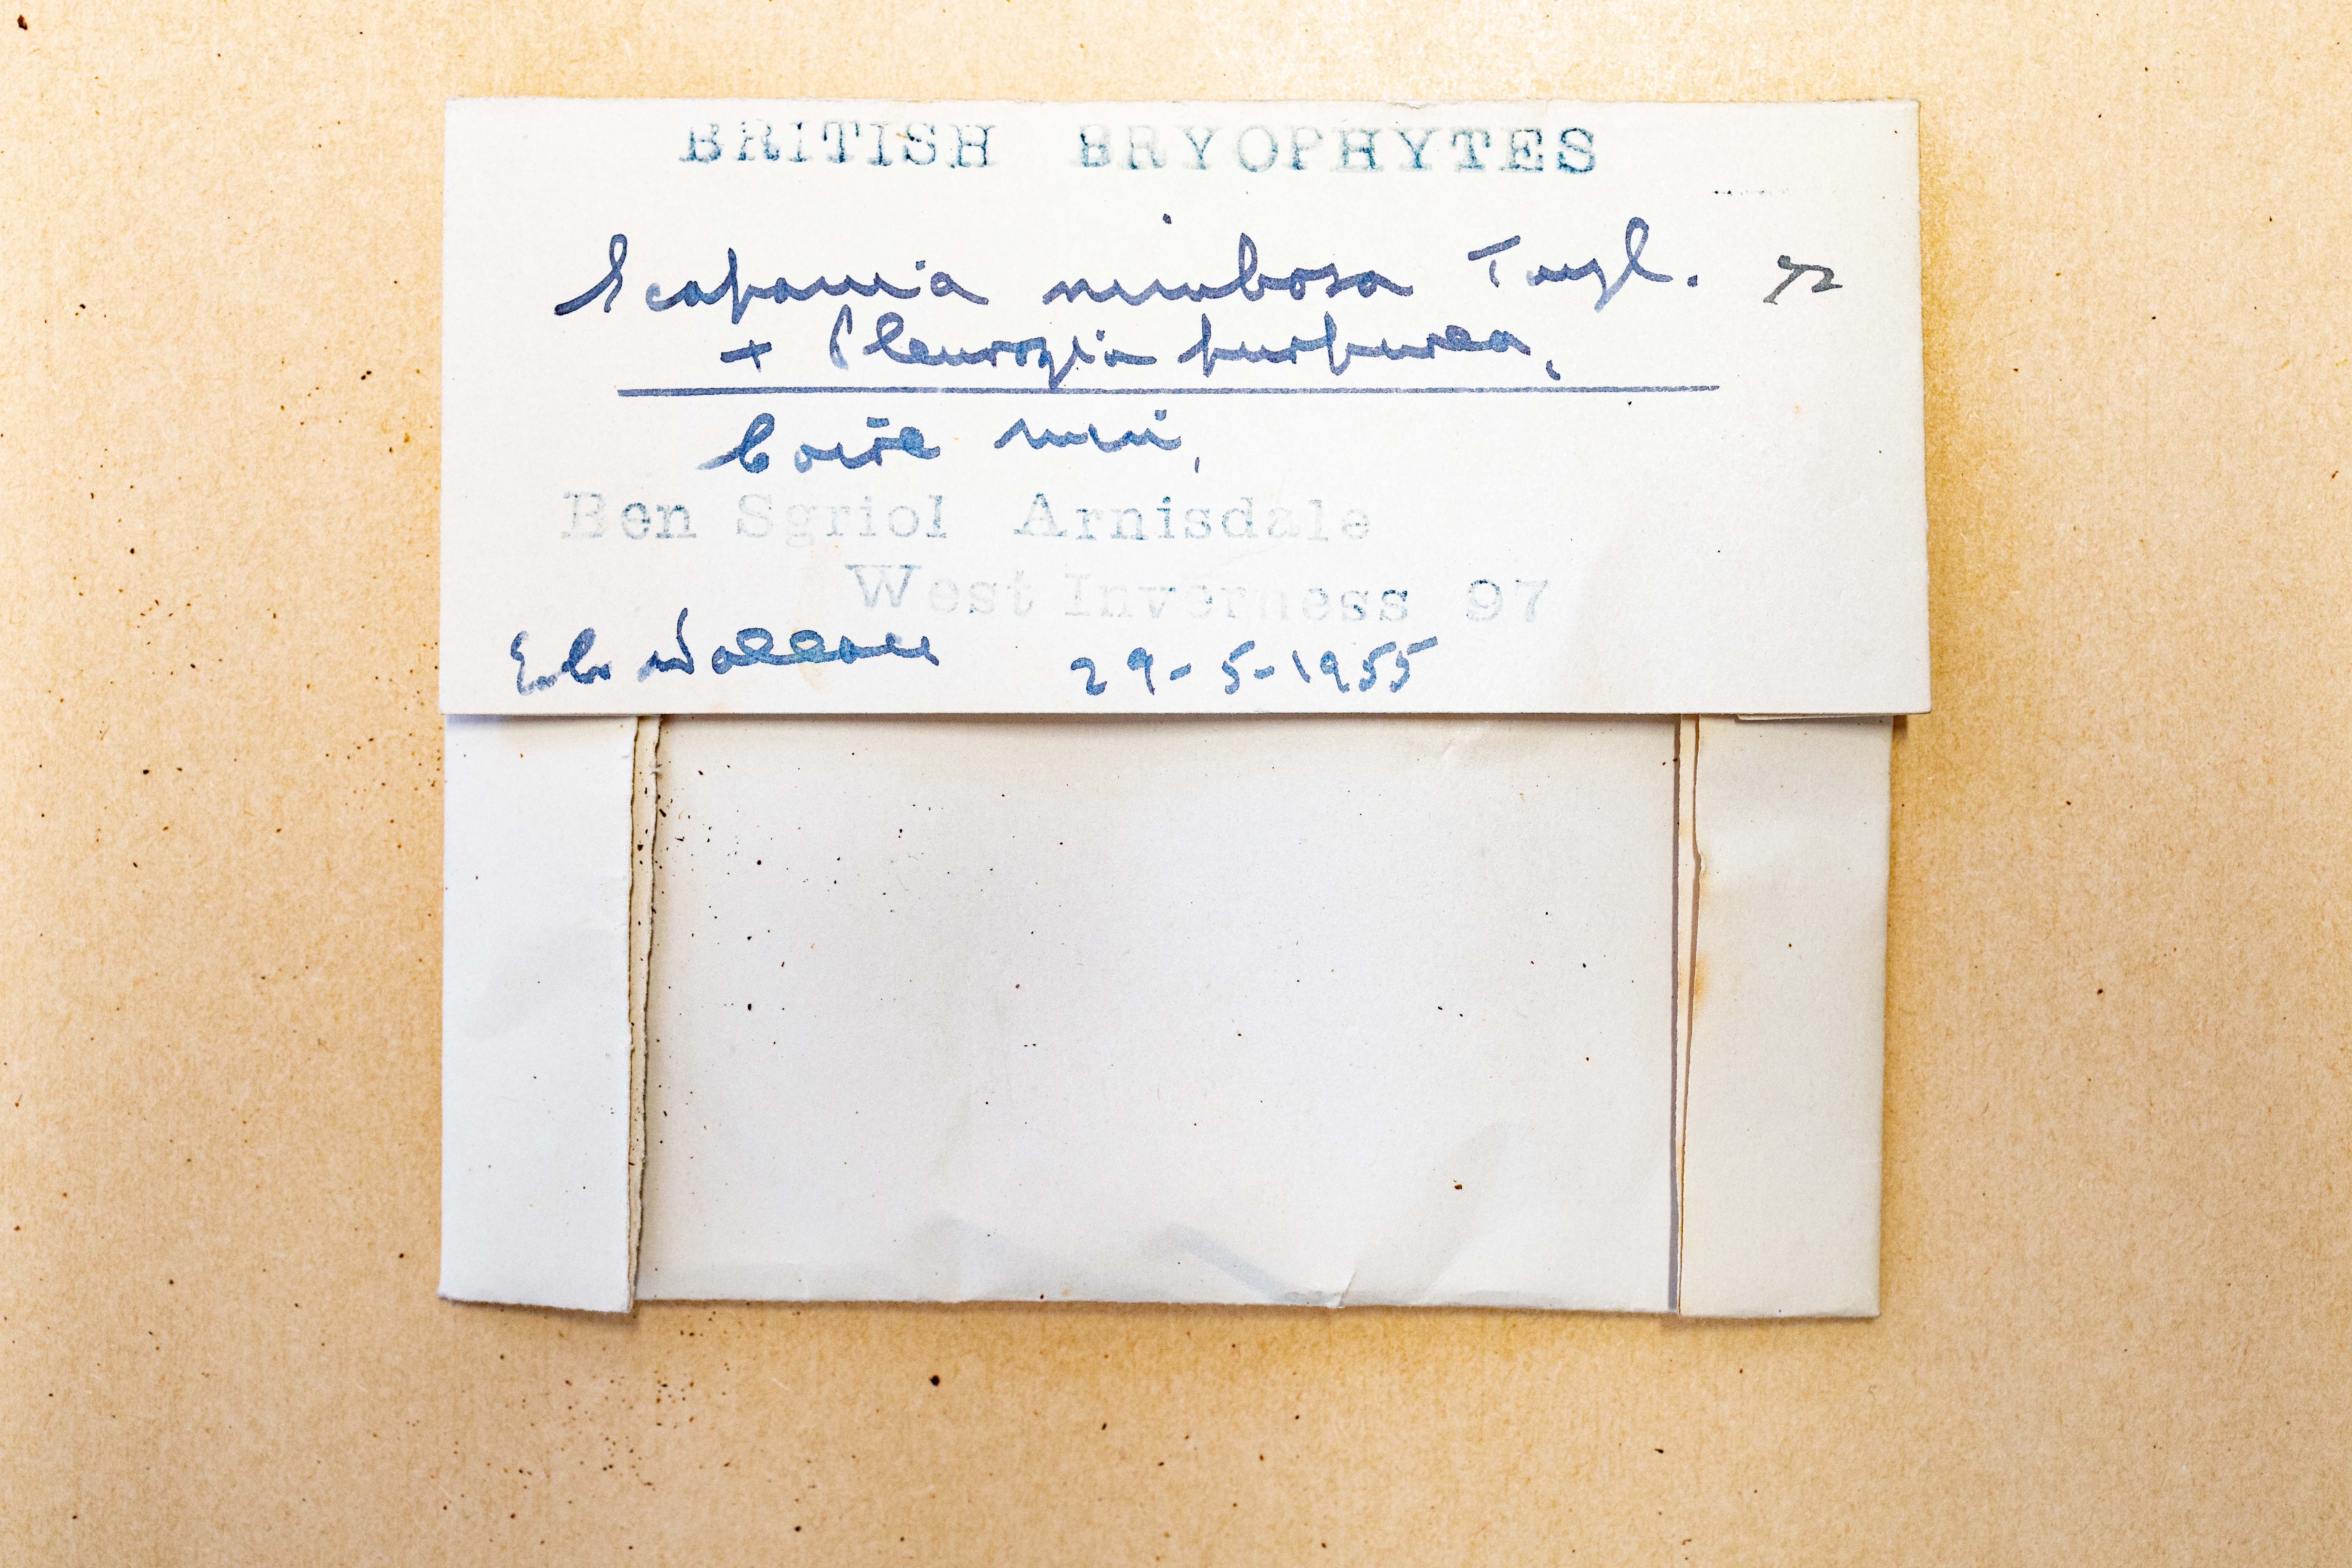 BRITISH BRYOPHYTES
Scapania nimbosa Tayl. 72
+ Pleurozia purpurea,
Coire min,
Ben Sgriol Arnisdale
West Inverness 97
E.C. Wallace 29-5-1955